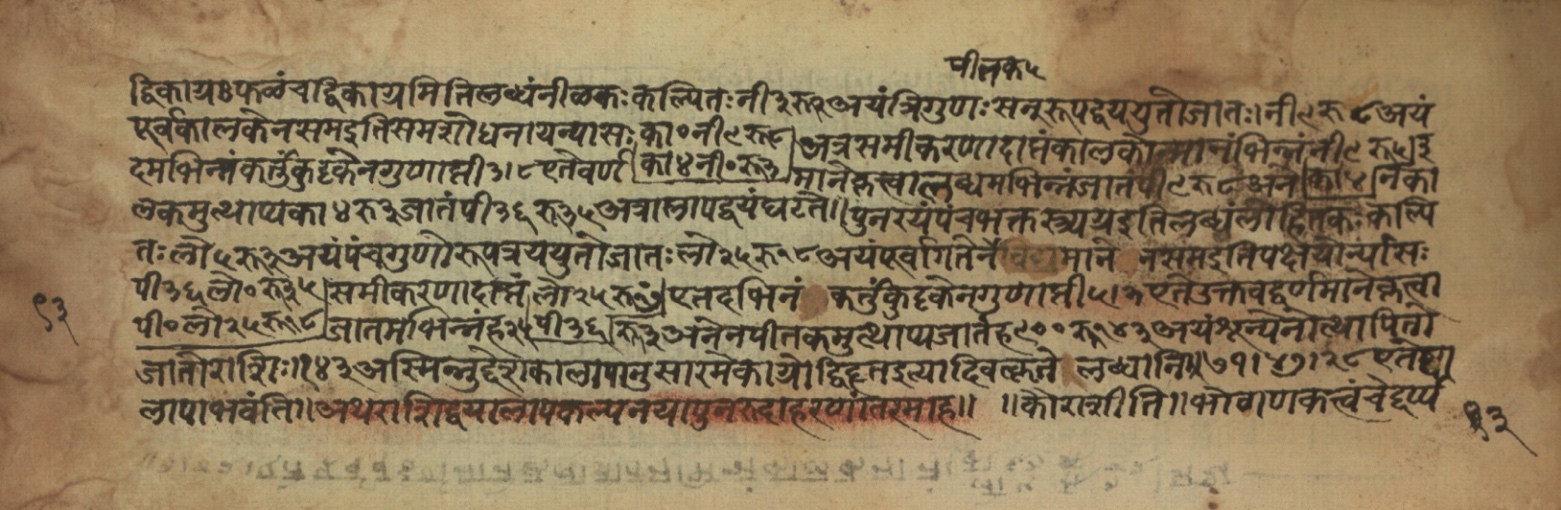 पीतक५
द्विकाग्र३फलंचद्विकाग्रमितिलब्धंनीलकःकल्पितःनी३रू२अयंत्रिगुणःसन्रूपद्वययुतोजातः।नी९रू८अयं
पूर्वकालकेनसमइतिसमशोधनायन्यासःका०नी९रू८अत्रसमीकरणादाप्तंकालकोन्मानंभिन्नंनी९रू५इ
दमभिन्नंकर्तुंकुट्टकेनगुणाप्ती३।८एतेवर्णका४नी०रू३मानेकृत्वालब्धमभिन्नंजातंपी९रू८अनेका४नका
लकमुत्थाप्यका४रू३जातंपी३६रू३५अत्रालापद्वयंघटते॥पुनरयंपंचभक्तस्त्र्यग्रइतिलब्धंलोहितकःकल्पि
तःलो५रू३अयंपंचगुणोरूपत्रययुतोजातःलो२५रू१८अयंपूर्वागतेन मानेनसमइतिपक्षयोर्न्यासः
पी३६लो०रू३५समीकरणादाप्तंलो२५रू एतदभिनंकर्तुंकुट्टकेनगुणाप्ती५।३एतेउक्तवद्वर्णमानेकृत्वा
पी०लो२५रू१८जातमभिन्नंह२५पी३६रू३अनेनपीतकमुत्थाप्यजातंह९००रू१४३अयंशून्येनोत्थापितो
जातोराशिः।१४३अस्मिन्नुद्देशकालापानुसारमेकाग्रोद्विहृतइत्यादिवत्कृते लब्धानि॥७१।४७।२८एतेषा
लापाभवंति॥अथराशिद्वयालापकल्पनयापुनरुदाहरणांतरमाह॥ ॥कौराशीति॥भोगणकत्वंचेद्दृप्प
९३
९३